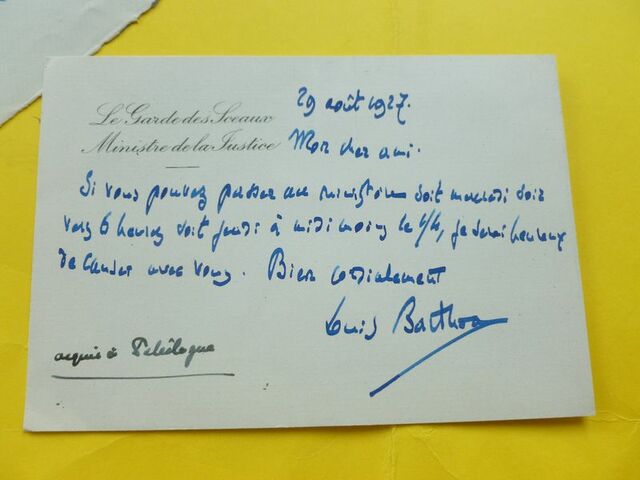 Le Garde des Sceaux
Ministre de la Justice
29 août 1927.
Mon cher ami.
Si vous pouvez passer au ministère soit mercredi soir
vers 6 heures soit jeudi à midi moins le 1/4, je serai heureux
de causer avec vous. Bien cordialement
Louis Barthou
acquis à